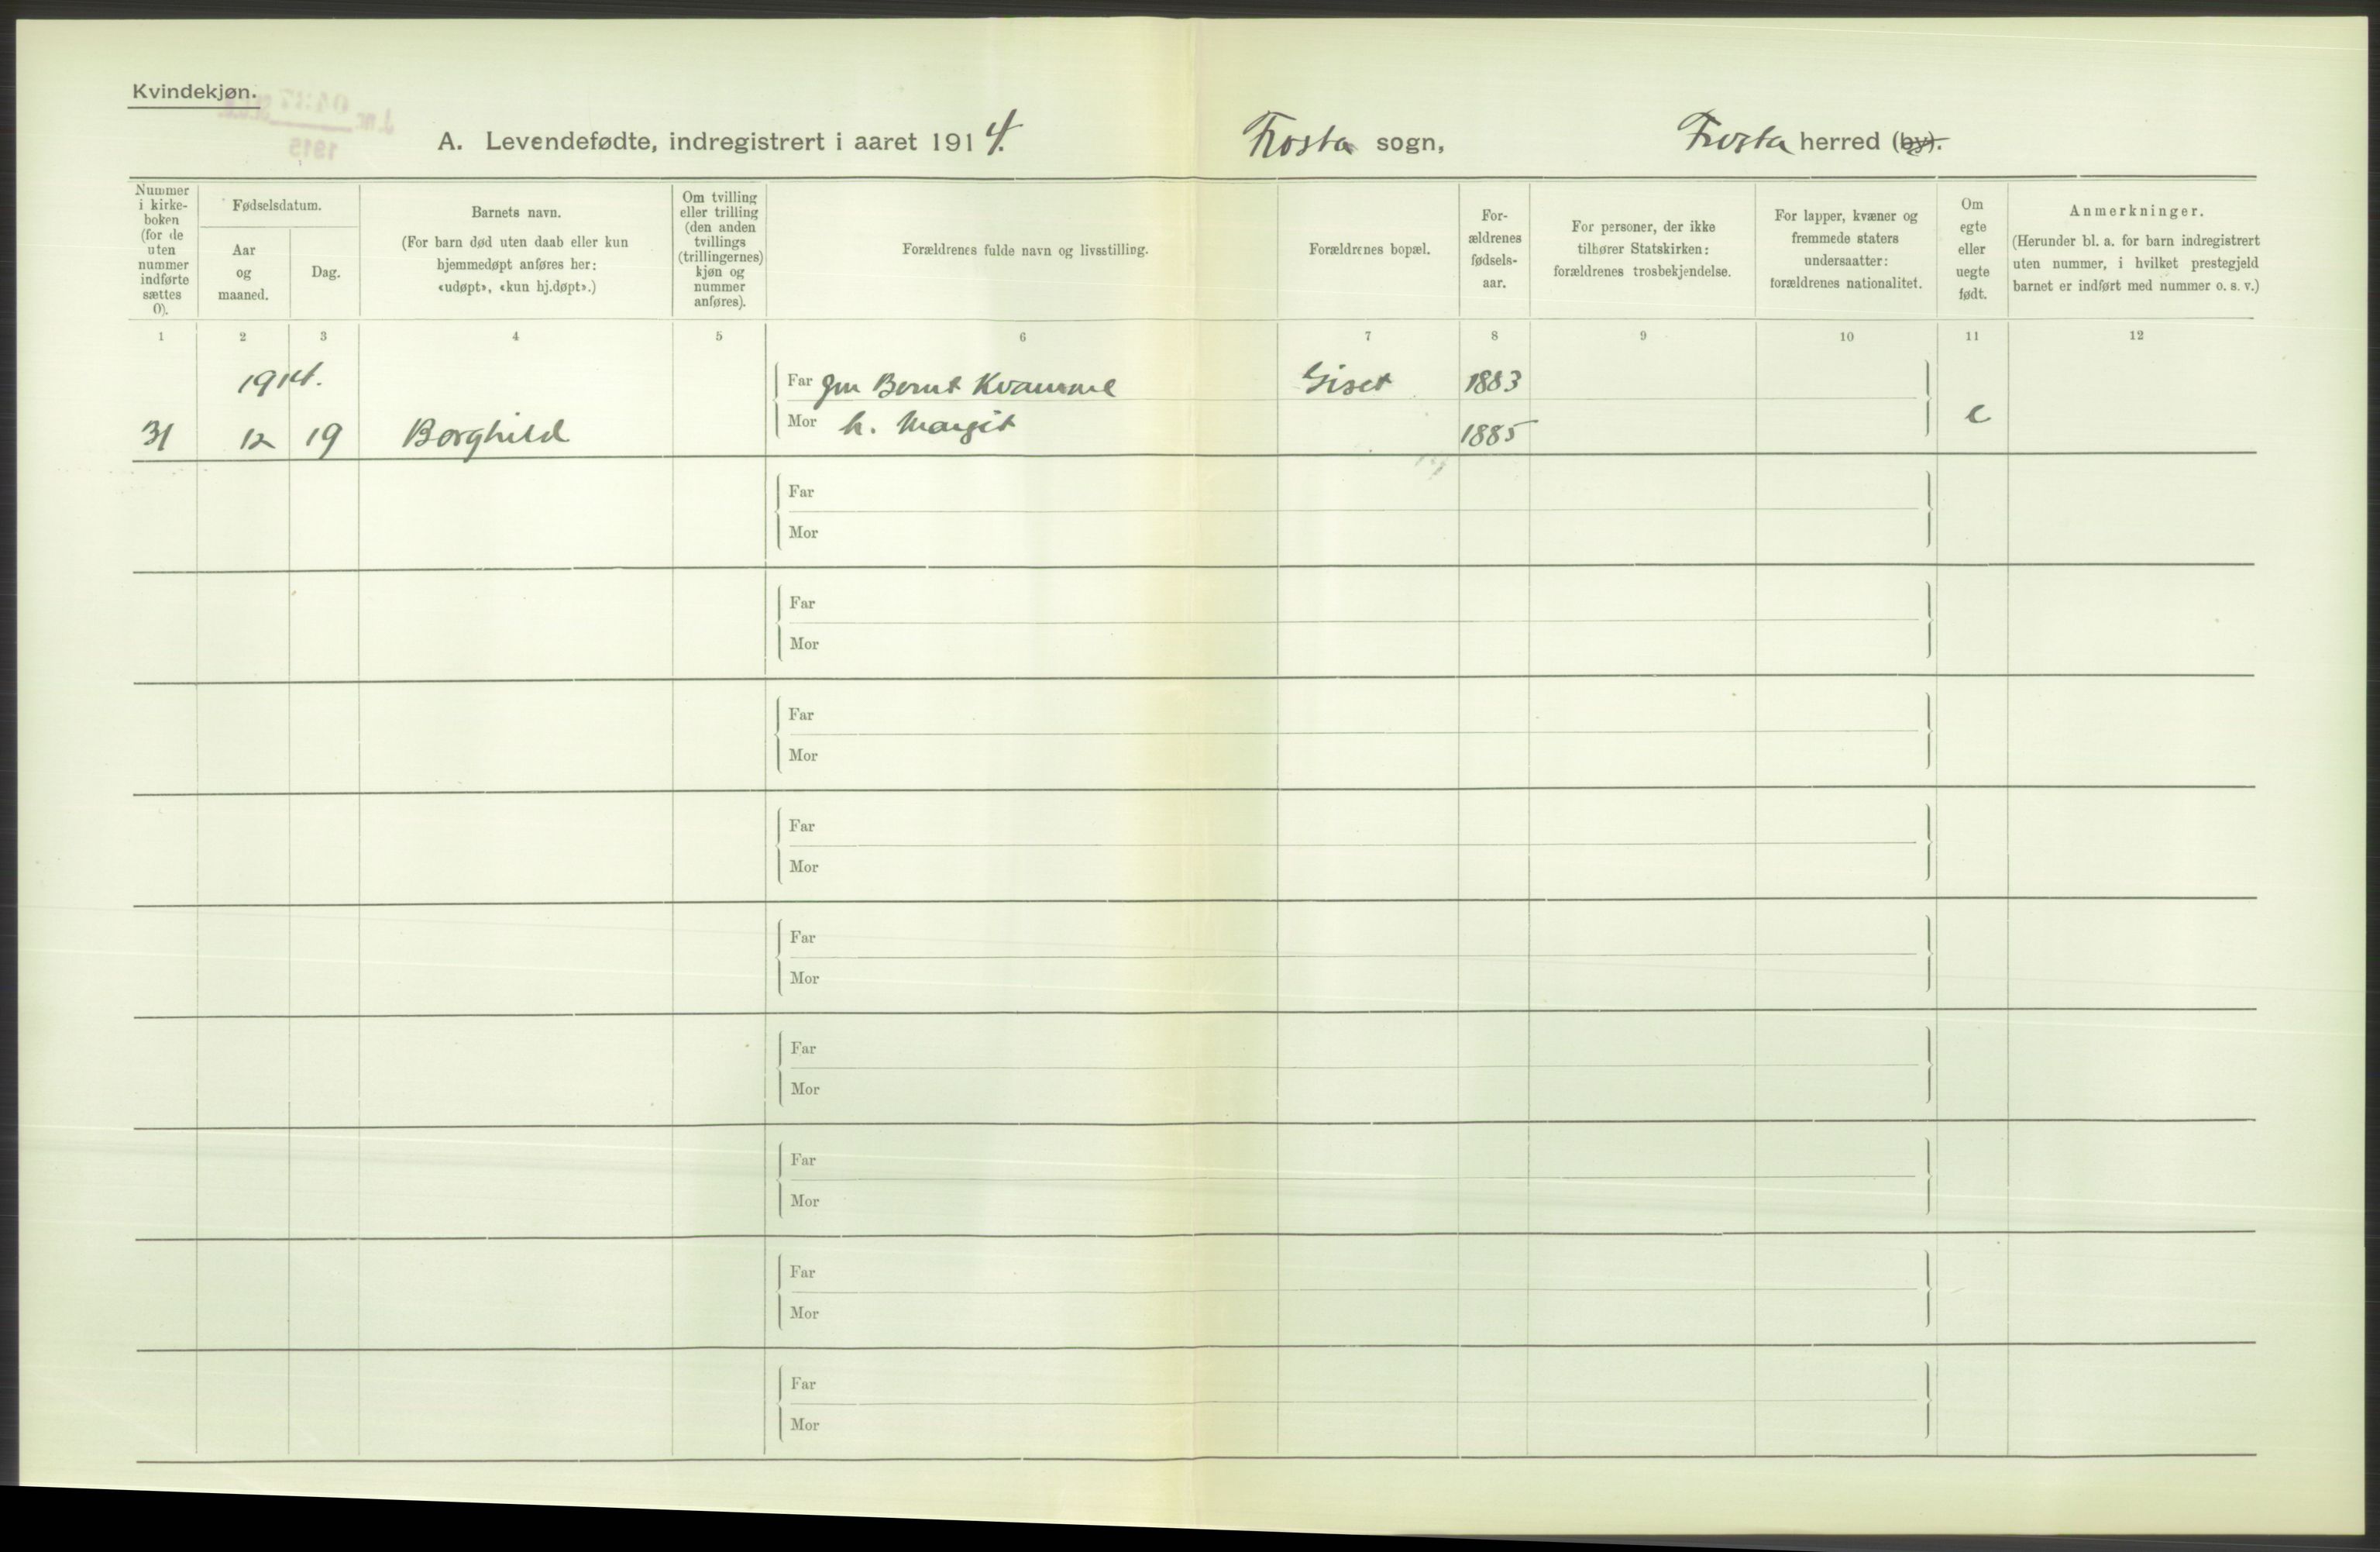 Kvindekjøn.
A. Levendefødte, indregistrert i aaret 1914.
Frosta sogn,
Frosta herred (by).
Nummer
i kirke-
boken
(for de
uten
nummer
indførte
sættes
0).
Fødselsdatum.
Aar
og
maaned.
Dag.
Barnets navn.
(For barn død uten daab eller kun
hjemmedøpt anføres her:
«udøpt», «kun hj.døpt».)
Om tvilling
eller trilling
(den anden
tvillings
(trillingernes)
kjøn og
nummer
anføres).
Forældrenes fulde navn og livsstilling.
Forældrenes bopæl.
For-
ældrenes
fødsels-
aar.
For personer, der ikke
tilhører Statskirken:
forældrenes trosbekjendelse.
For lapper, kvæner og
fremmede staters
undersaatter:
forældrenes nationalitet.
Om
egte
eller
uegte
født.
Anmerkninger.
(Herunder bl. a. for barn indregistrert
uten nummer, i hvilket prestegjeld
barnet er indført med nummer o. s. v.)
1 2 3 4 5 6 7 8 9 10 11 12
1914.
Far Gm Bernt Kvamme Giset 1883
31 12 19 Borghild Mor h. Margit 1885 e
Far
Mor
Far
Mor
Far
Mor
Far
Mor
Far
Mor
Far
Mor
Far
Mor
Far
Mor
Far
Mor